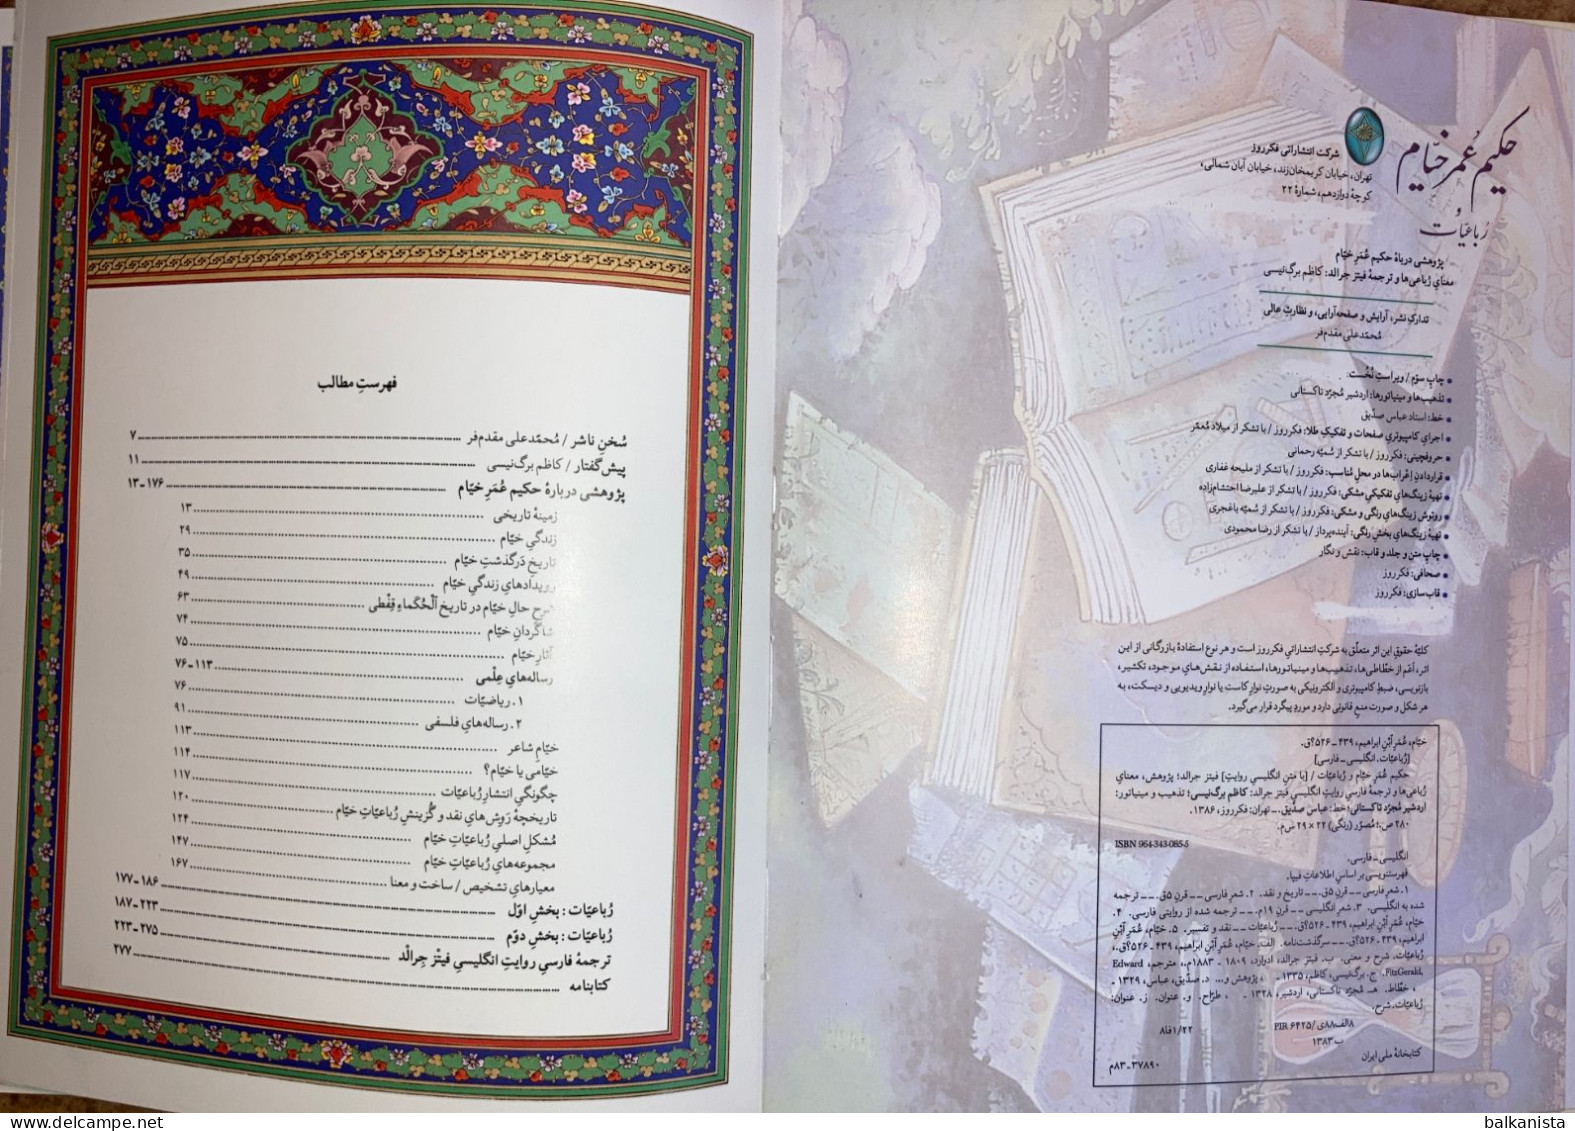 حکیم عُمر خیّام
و
رُباعیّات
شرکت انتشاراتی فکرروز
تهران، خیابان کریمخان‌زند، خیابان آبان شمالی،
کوچهٔ دوازدهم، شمارهٔ ۲۲
پژوهشی دربارهٔ حکیم عُمَرِ خیّام
معنایِ رُباعی‌ها و ترجمهٔ فیتز جرالد: کاظم برگ‌نیسی
تدارکِ نشر، آرایش و صفحه‌آرایی، و نظارتِ عالی
مُحمّدعلی مقدم‌فر
چاپِ سوّم / ویراستِ نُخُست:
تذهیب‌ها و مینیاتورها: اردشیر مُجرّد تاکستانی
خط: استاد عباس صدّیق
اجرایِ کامپیوتریِ صفحات و تفکیکِ طلا: فکرروز / با تشکر از میلاد مُعمّر
حروفچینی: فکرروز / با تشکر از سُمیّه رحمانی
قراردادنِ اِعْراب‌ها در محلِ مُناسب: فکرروز / با تشکر از ملیحه غفاری
تهیهٔ زینگ‌هایِ تفکیکیِ مشکی: فکرروز / با تشکر از علیرضا احتشام‌زاده
روتوشِ زینگ‌هایِ رنگی و مشکی: فکرروز / با تشکر از سُمیّه باغجری
تهیهٔ زینگ‌هایِ بخشِ رنگی: آینده‌پرداز / با تشکر از رضا محمودی
چاپ متن و جلد و قاب: نقش و نگار
صحافی: فکرروز
قاب‌سازی: فکرروز
کلیّهٔ حقوقِ این اثر متعلّق به شرکتِ انتشاراتیِ فکرروز است و هر نوع استفادهٔ بازرگانی از این
اثر، اَعَم از خطّاطی‌ها، تذهیب‌ها و مینیاتورها، استفاده از نقش‌هایِ موجود، تکثیر،
بازنویسی، ضبطِ کامپیوتری و الکترونیکی به صورتِ نوارِ کاست یا نوارِ ویدیویی و دیسکت، به
هر شکل و صورت منعِ قانونی دارد و موردِ پیگرد قرار می‌گیرد.
خیّام، عُمَرِ اَبْنِ ابراهیم، ۴۳۹ ـ ۵۲۶؟ق.
[رُباعیّات. انگلیسی ـ فارسی]
حکیم عُمَرِ خیّام و رُباعیّات / [با متنِ انگلیسیِ روایتِ] فیتز جرالد؛ پژوهش، معنایِ
رُباعی‌ها و ترجمهٔ فارسیِ روایتِ انگلیسیِ فیتز جرالد: کاظم برگ‌نیسی؛ تذهیب و مینیاتور:
اردشیر مُجرّد تاکستانی؛ خط: عباس صدّیق. ـ تهران: فکرروز، ۱۳۸۶.
۲۸۰ ص.؛ مُصوّر (رنگی) ۲۲ × ۲۹ س‌م.
ISBN 964-343-085-5
انگلیسی ـ فارسی.
فهرستنویسی بر اساسِ اطلاعاتِ فیپا.
۱. شعر فارسی ـــ قرن ۵ق. ـــ تاریخ و نقد. ۲. شعر فارسی ـــ قرن ۵ق. ـــ ترجمه
شده به انگلیسی. ۳. شعر انگلیسی ـــ قرن ۱۹م. ـــ ترجمه شده از روایتی فارسی. ۴.
خیّام، عُمَرِ اَبْنِ ابراهیم، ۴۳۹ ـ ۵۲۶؟ق. ـــ رُباعیّات ـــ نقد و تفسیر. ۵. خیّام، عُمَرِ اَبْنِ
ابراهیم، ۴۳۹ ـ ۵۲۶؟ق. ـــ سرگذشت‌نامه. الف. خیّام، عُمَرِ اَبْنِ ابراهیم، ۴۳۹ ـ ۵۲۶؟ق.،
رُباعیّات. شرح و معنی. ب. فیتز جرالد، ادوارد، ۱۸۰۹ ـ ۱۸۸۳م.، مترجم، Edward
FitzGerald. ج. برگ‌نیسی، کاظم، ۱۳۳۵ ـ ، پژوهش و... د. صدّیق، عباس، ۱۳۲۹ ـ
، خطّاط. هـ. مُجرّد تاکستانی، اردشیر، ۱۳۲۸ ـ ، طرّاح. و. عنوان. ز. عنوان:
رُباعیّات. شرح.
۸الف۸۸ی / PIR ۶۴۲۵ ۱/۲۲فا۸
ب۱۳۸۳
کتابخانهٔ ملی ایران ۸۳ـ۳۷۸۹۰م
فهرستِ مطالب
سُخنِ ناشر / مُحمّدعلی مقدم‌فر ۷
پیش‌گفتار / کاظم برگ‌نیسی ۱۱
پژوهشی دربارهٔ حکیم عُمَرِ خیّام ۱۳ـ۱۷۶
زمینهٔ تاریخی ۱۳
زندگیِ خیّام ۲۹
تاریخِ دَرگذشتِ خیّام ۳۵
رویدادهایِ زندگیِ خیّام ۴۹
شرحِ حالِ خیّام در تاریخ اَلْحُکَماءِ قِفْطی ۶۳
شاگردانِ خیّام ۷۴
آثارِ خیّام ۷۵
رساله‌هایِ عِلْمی ۷۶ـ۱۱۳
۱. ریاضیّات ۷۶
۲. رساله‌هایِ فلسفی ۹۱
خیّامِ شاعر ۱۱۳
خیّامی یا خیّام؟ ۱۱۴
چگونگیِ انتشارِ رُباعیّات ۱۱۷
تاریخچهٔ رَوِش‌هایِ نقد و گُزینشِ رُباعیّاتِ خیّام ۱۲۰
مُشکلِ اصلیِ رُباعیّاتِ خیّام ۱۲۴
مجموعه‌هایِ رُباعیّاتِ خیّام ۱۴۷
معیارهایِ تشخیص / ساخت و معنا ۱۶۷
رُباعیّات: بخشِ اوّل ۱۷۷ـ۱۸۶
رُباعیّات: بخشِ دوّم ۱۸۷ـ۲۲۳
ترجمهٔ فارسیِ روایتِ انگلیسیِ فیتْز جِرالْد ۲۲۳ـ۲۷۵
کتابنامه ۲۷۷
balkanista
delcampe.net